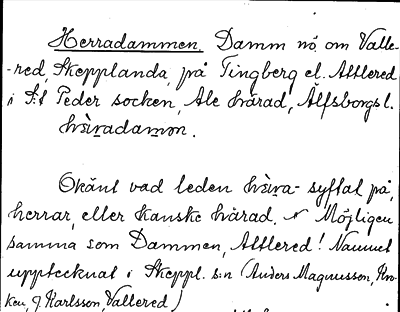 Herradammen. Damm nö om Valle-
-red, Skepplanda, på Tingberg el. Attlered
i S:t Peder socken, Ale härad, Älfsborgs l.
Okänt vad leden syftal på,
herrar, eller kanske härad. Möjligen
samma som Dammen, Attlered! Namnet
upptecknat i Skeppl. s:n (Anders Magnusson, Kro-
ken, J Karlsson, Vallered)